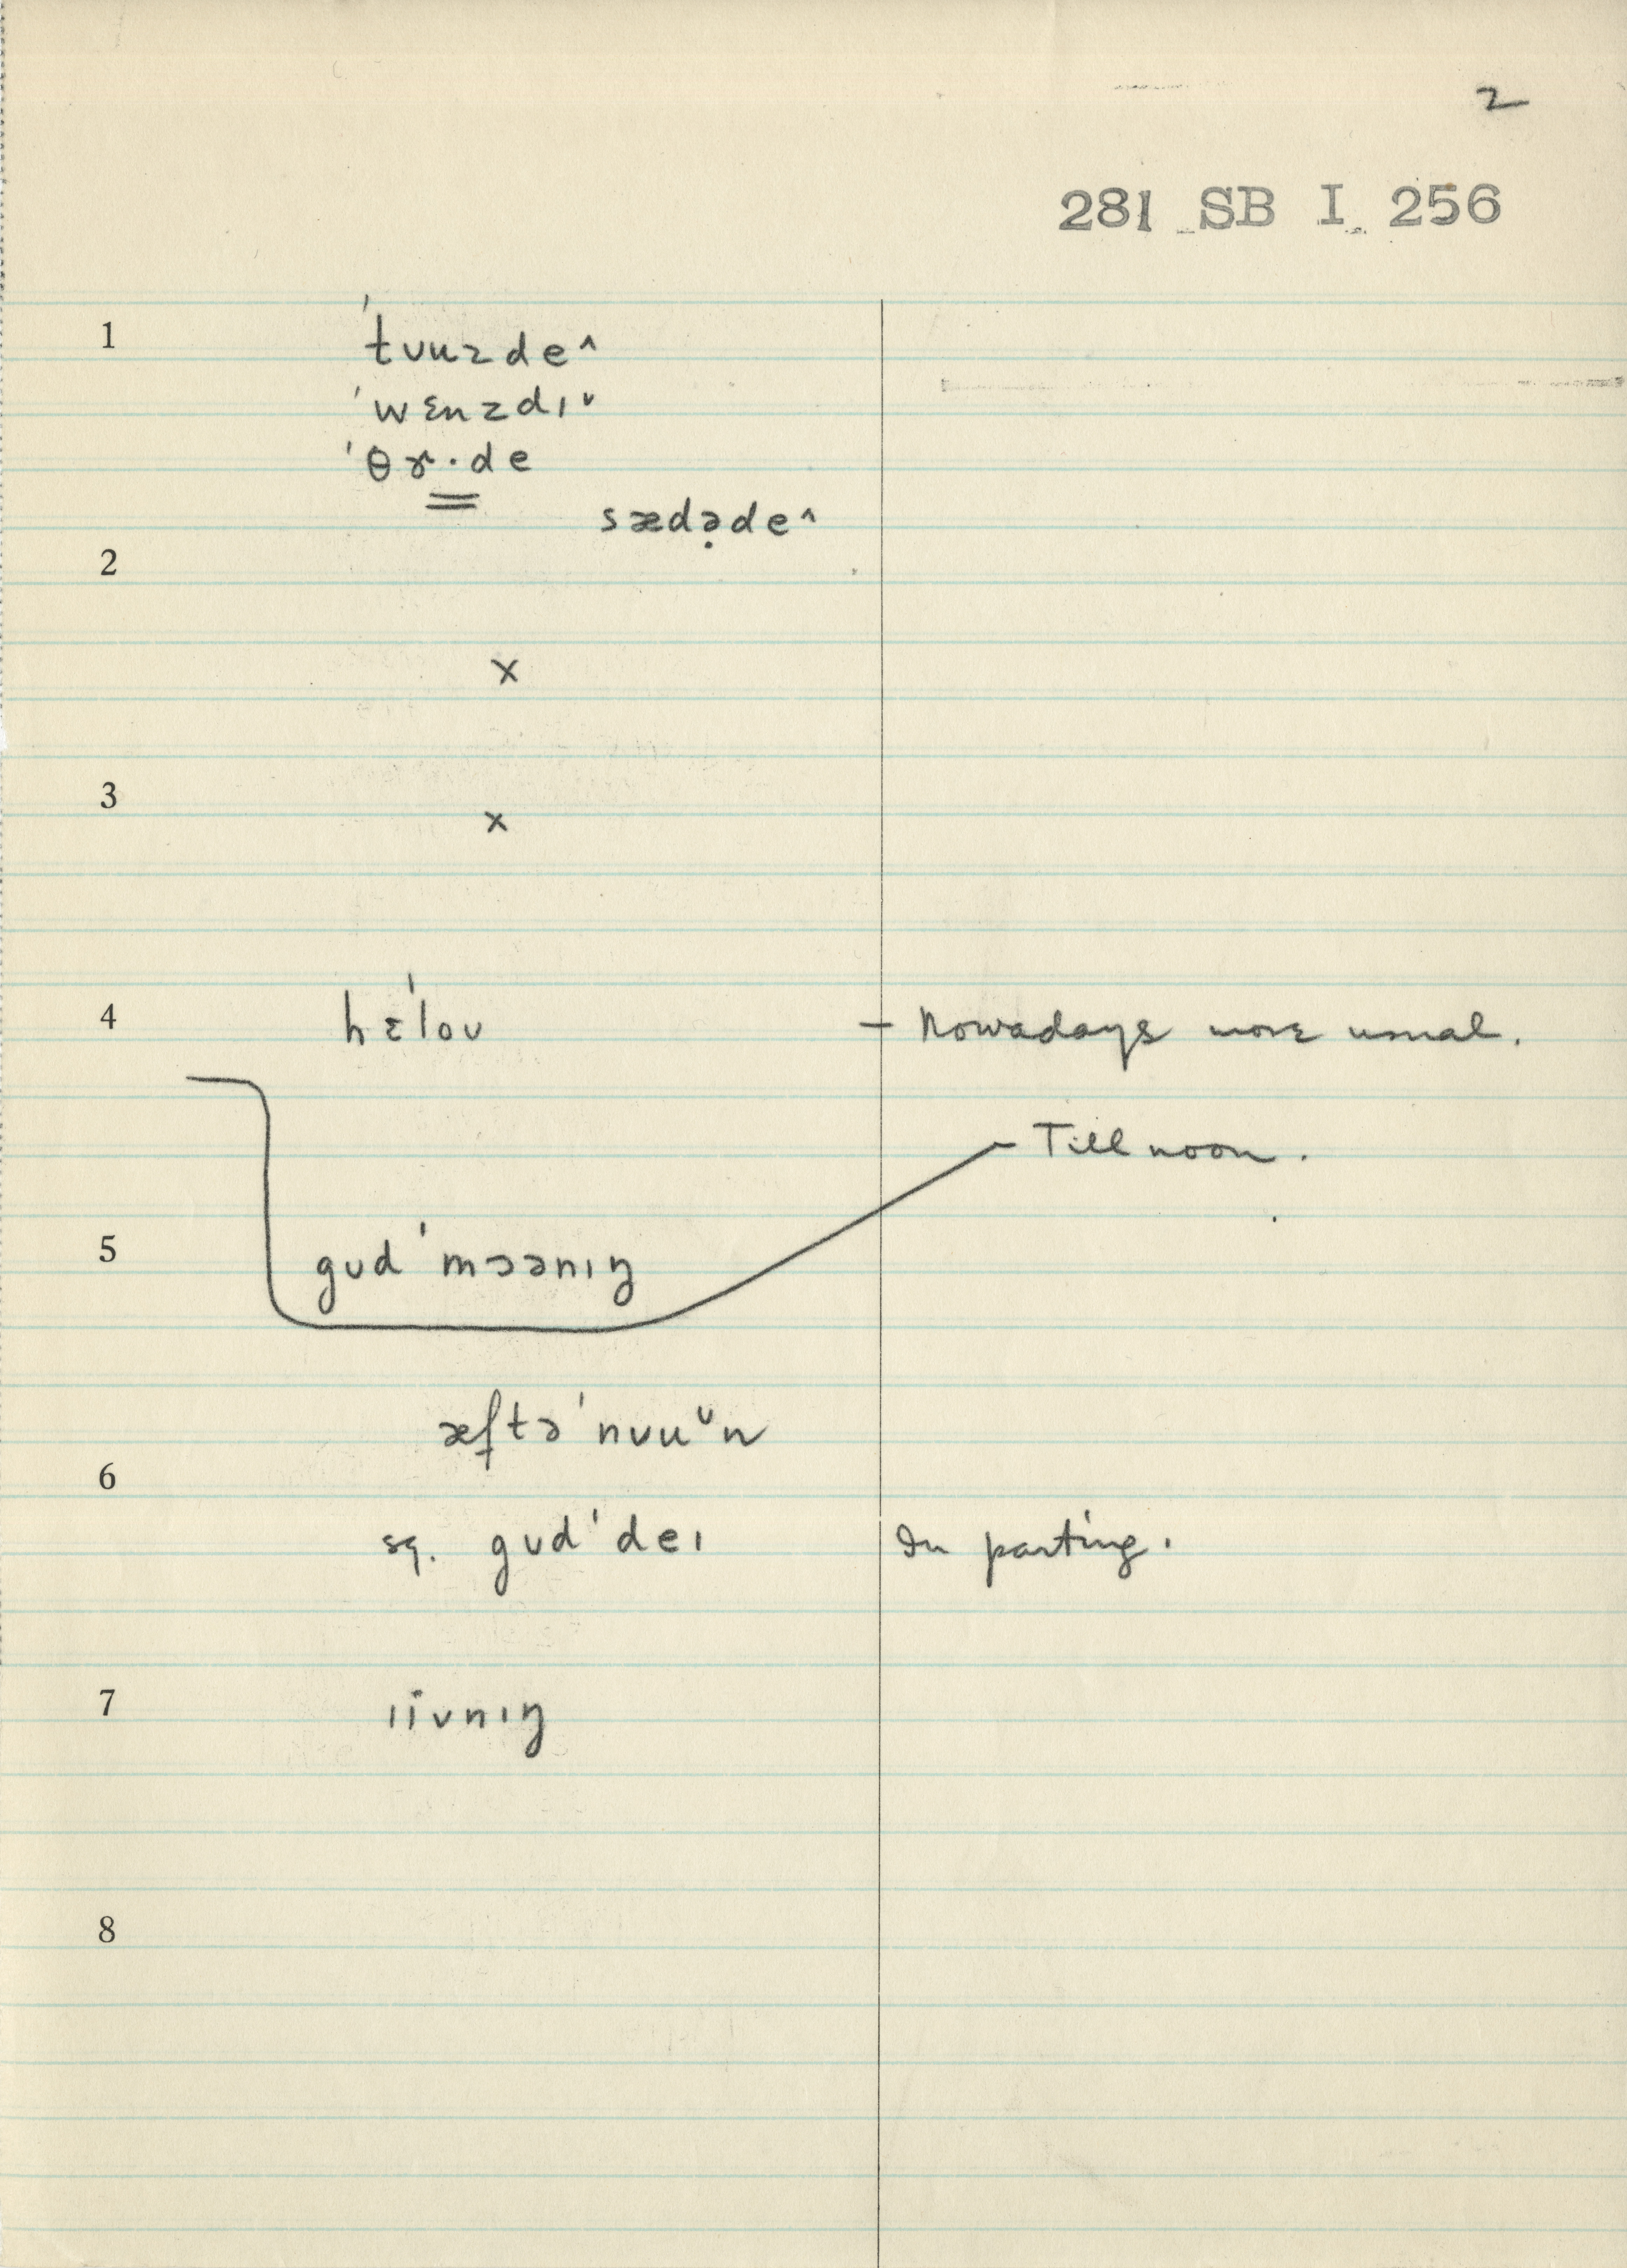 2
281 SB I 256
1 'tʊuzde^
'wɛnzdɪ˅
'θɤ·de
sædə̣de^
2
×
3
×
4 hɛ'loʊ – Nowadays more usual.
– Till noon.
5 gʊd 'mɔənɪŋ
æftə'nʊu˅n
6
sq. gʊd'deɪ In parting.
7 ɪivnɪŋ
8